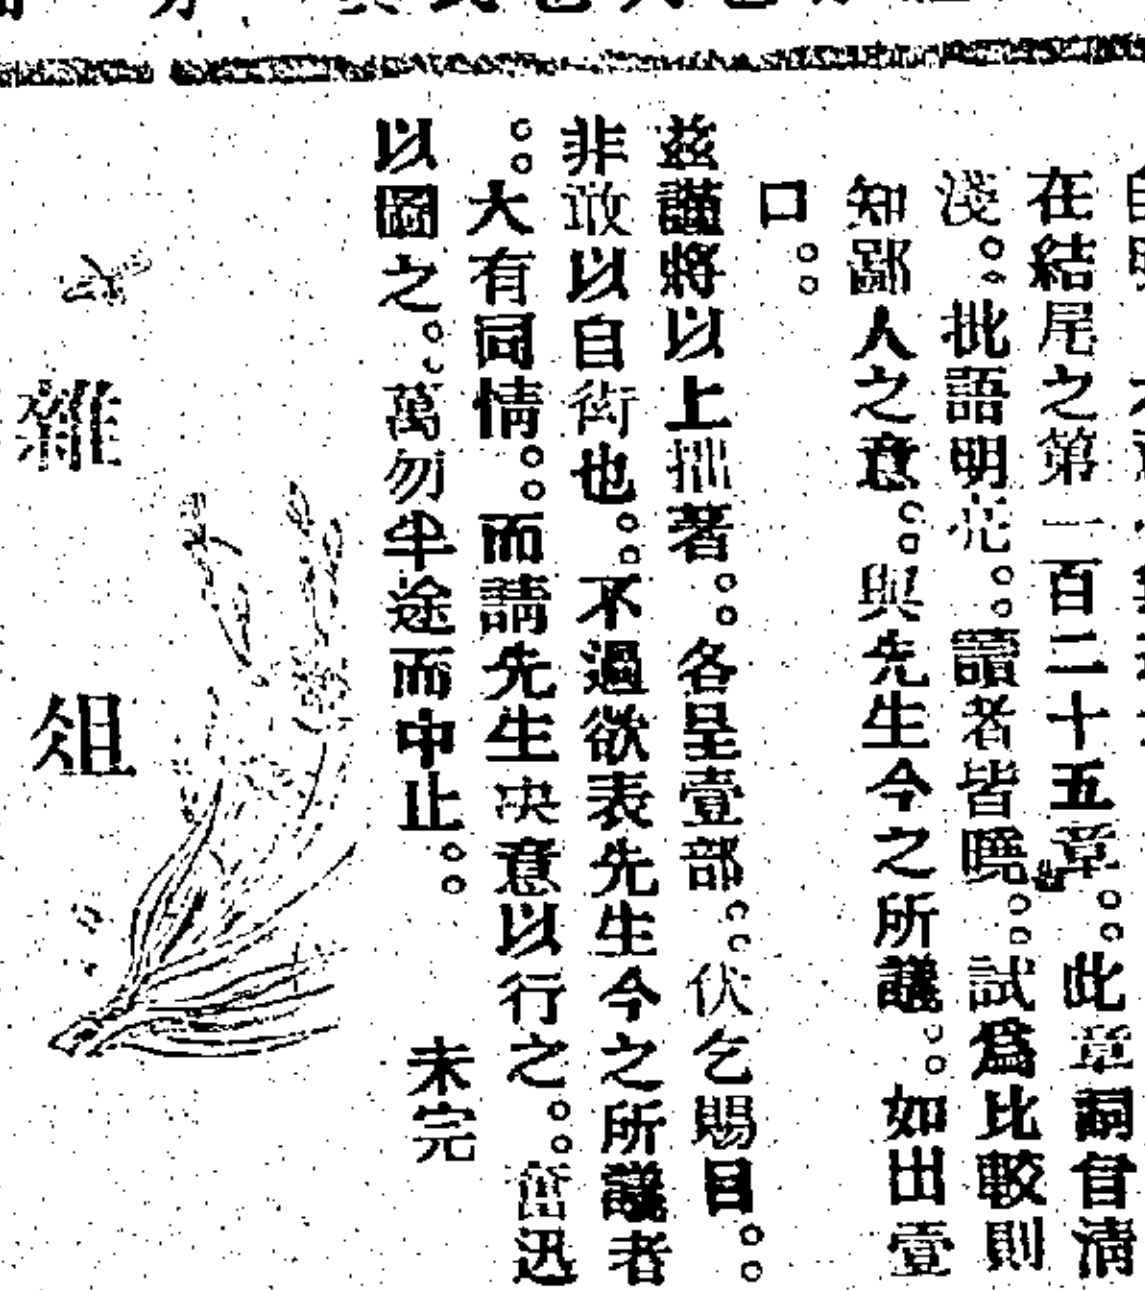 在結尾之第一百二十五章。此章詞旨清
淺。批語明亮。讀者皆曉。試爲比較則
知鄙人之意。與先生今之所議。如出壹
口。
茲謹將以上拙著。各呈壹部。伏乞賜目。
非敢以自衒也。不過欲表先生今之所議者
。大有同情。而請先生决意以行之。奮迅
以圖之。萬勿半途而中止。 未完
雜俎